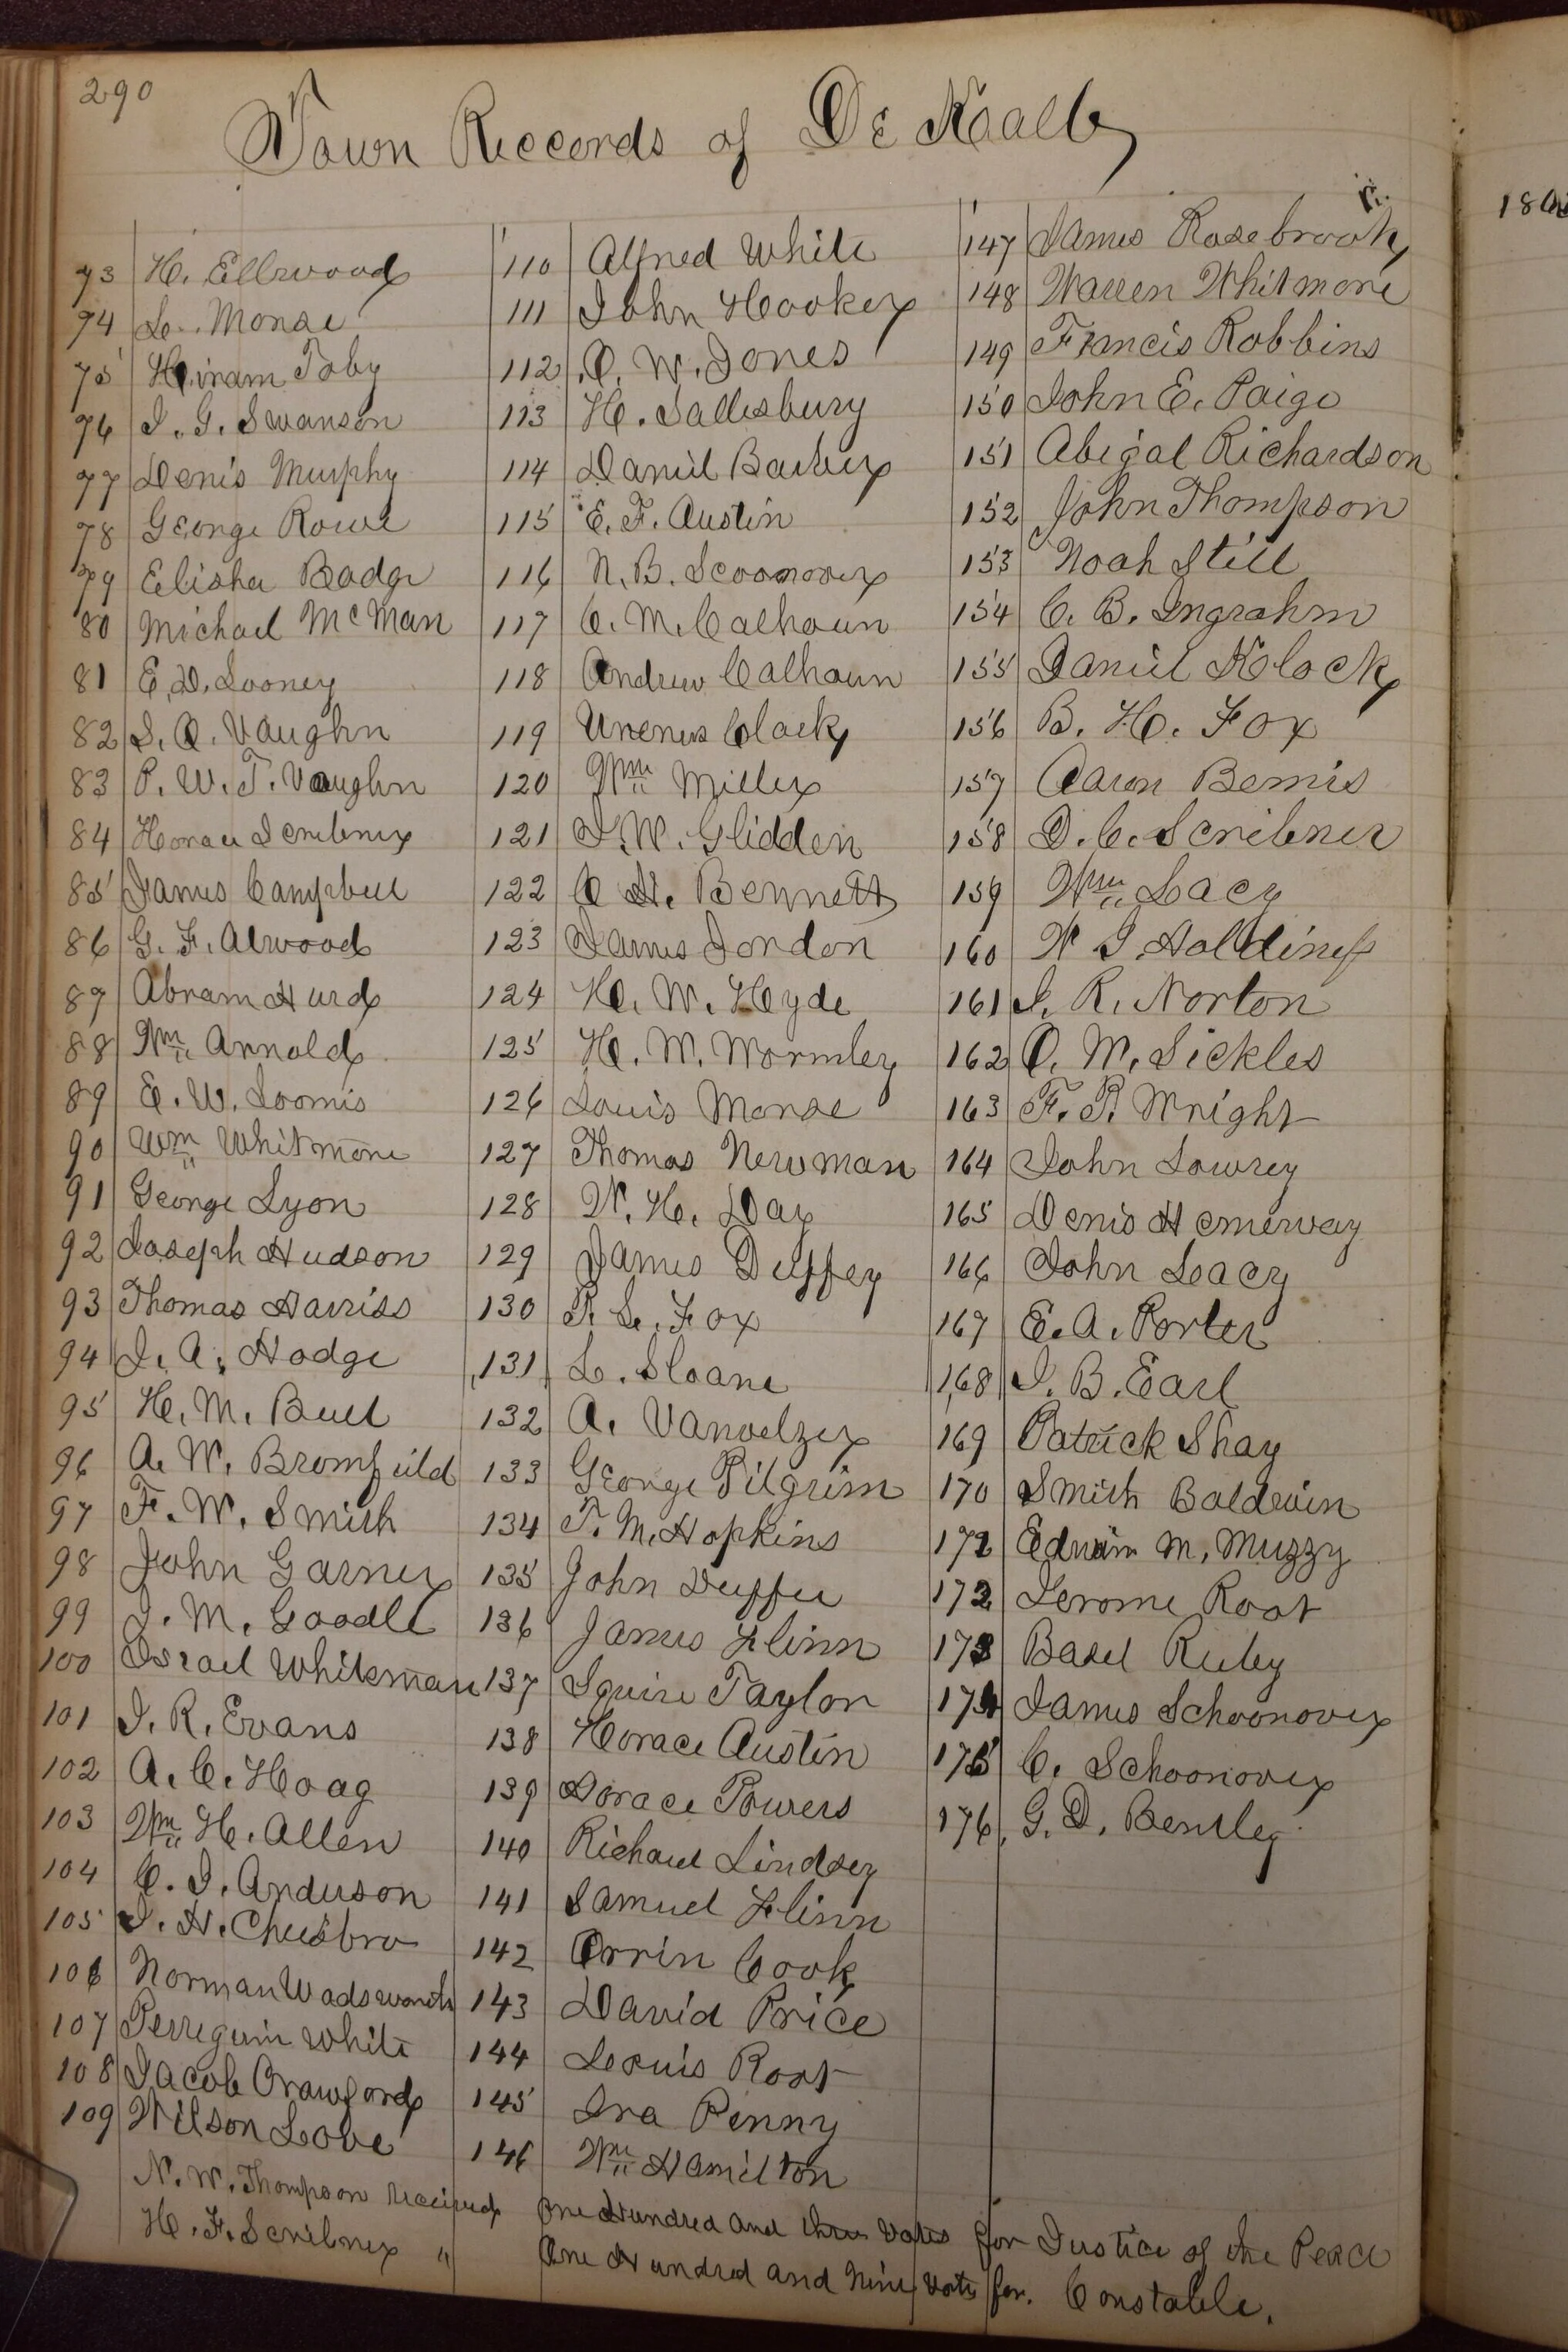 290
Town Records of De Kalb
73 H. Ellwood
74 L. Morse
75 Hiram Toby
76 I. G. Swanson
77 Denis Murphy
78 George Rowe
79 Elisha Badge
80 Michael McMan
81 E. D. Looney
82 S. O. Vaughn
83 P. W. T. Vaughn
84 Horace Scribner
85 James Campbell
86 G. F. Atwood
87 Abram Hurd
88 Wm Arnold
89 E. W. Loomis
90 Wm Whitmore
91 George Lyon
92 Joseph Hudson
93 Thomas Harriss
94 I. A. Hodge
95 H. M. Bull
96 A. W. Bromfield
97 F. W. Smith
98 John Garner
99 J. M. Goodle
100 Israel Whitsman
101 I. R. Evans
102 A. C. Hoag
103 Wm H. Allen
104 C. I. Anderson
105 I. H. Cheisbro
106 Norman Wadsworth
107 Perreguin White
108 Jacob Crawford
109 Wilson Love
110 Alfred White
111 John Hooker
112 O. W. Jones
113 H. Sallesbury
114 Daniel Barber
115 E. F. Austin
116 N. B. Scoonover
117 C. M. Calhoun
118 Andrew Calhoun
119 Urenus Clark
120 Wm Miller
121 I. W. Glidden
122 C H. Bennett
123 James Jordon
124 H. W. Hyde
125 H. M. Wormley
126 Louis Morse
127 Thomas Newman
128 W. H. Day
129 James Duffey
130 P. L. Fox
131 L. Sloane
132 A. Vanvelzer
133 George Pilgrim
134 T. M. Hopkins
135 John Duffee
136 James Flinn
137 Squire Taylor
138 Horace Austin
139 Horace Powers
140 Richard Lindsey
141 Samuel Flinn
142 Orrin Cook
143 David Price
144 Lewis Root
145 Ira Penny
146 Wm Hamilton
147 James Rosebrook
148 Warren Whitmore
149 Francis Robbins
150 John E. Paige
151 Abigal Richardson
152 John Thompson
153 Noah Still
154 C. B. Ingrahm
155 Daniel Klock
156 B. H. Fox
157 Aaron Bemis
158 D. C. Scribner
159 Wm Lacy
160 W I Holdiness
161 I. R. Norton
162 O. M. Sickles
163 F. P. Wright
164 John Lowrey
165 Denis Hemerway
166 John Leacy
167 E. A. Porter
168 I. B. Earl
169 Patrick Shay
170 Smith Baldwin
171 Edwin M. Muzzy
172 Jerome Root
173 Basel Ruby
174 James Schoonover
175 C. Schoonover
176 G. D. Bentley
N. W. Thompson received One Hundred and three Votes for Justice of the Peace
H. F. Scribner " One Hundred and Nine Votes for. Constable.